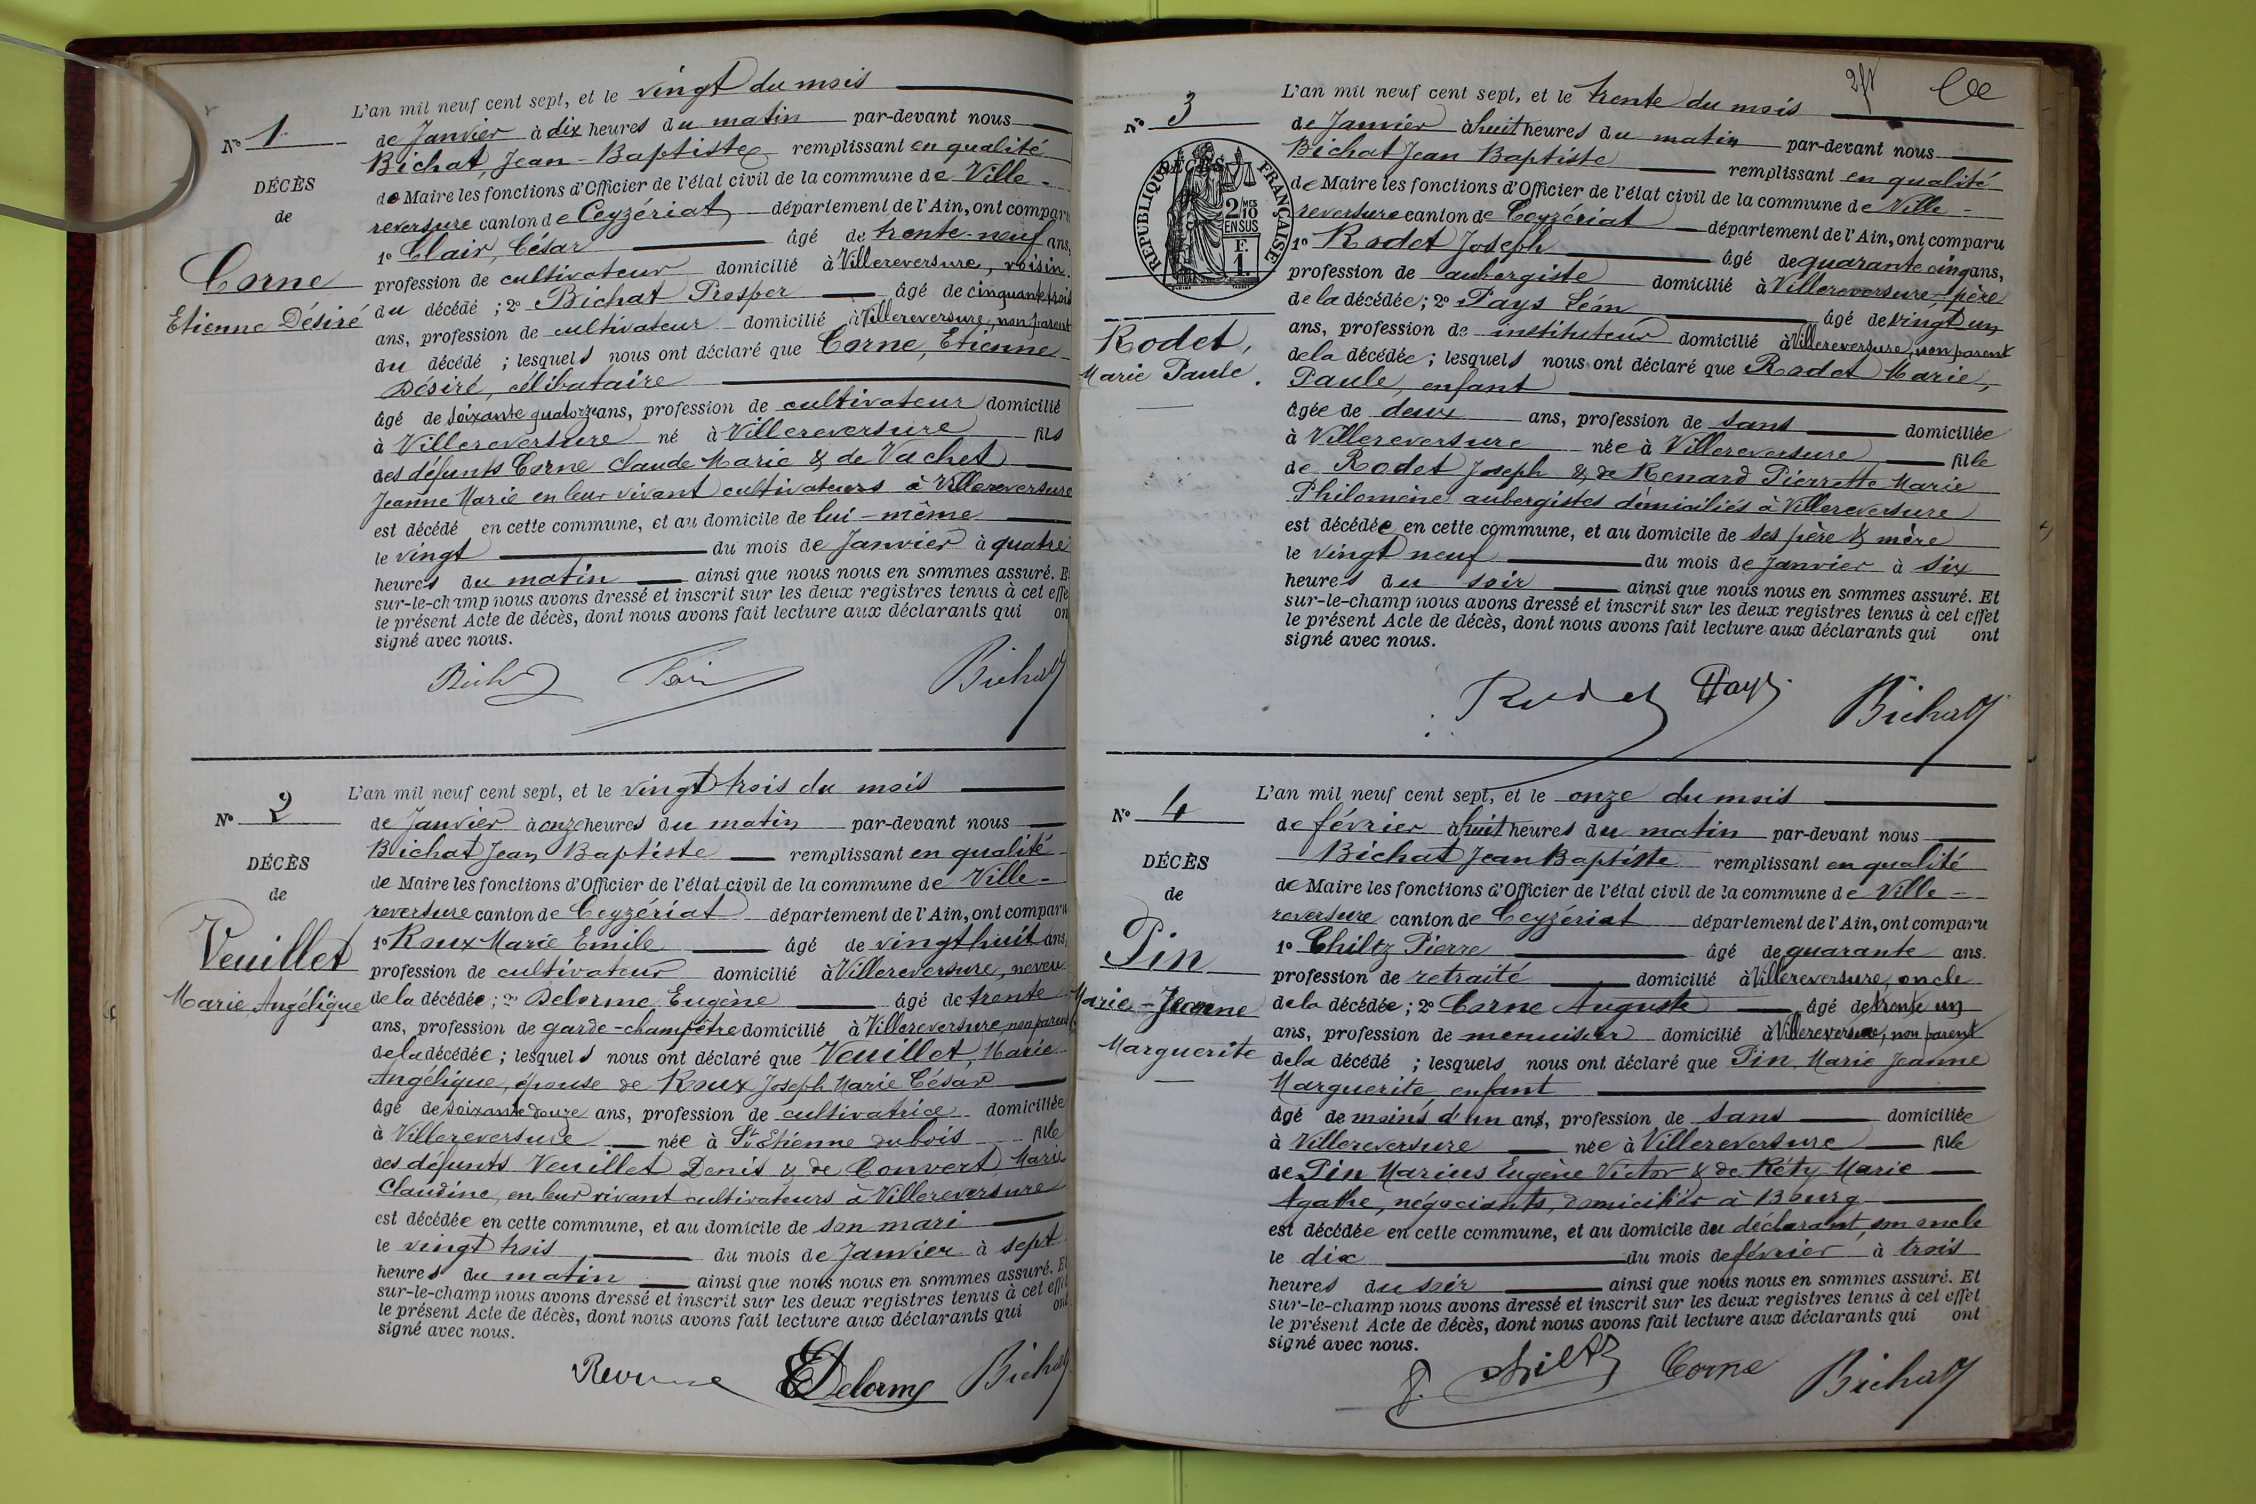 L'an mil neuf cent sept, et le vingt du mois
N° 1
de Janvier à dix heures du matin par-devant nous
Bichat, Jean-Baptiste remplissant en qualité
DÉCÈS
de Maire les fonctions d'Officier de l'état civil de la commune de Ville-
de
reversure canton de Ceyzériat département de l'Ain, ont comparu
1° Clair, César âgé de trente-neuf ans,
Corne
profession de cultivateur domicilié à Villereversure, voisin
Etienne Désiré
du décédé ; 2° Bichat Prosper âgé de cinquante trois
ans, profession de cultivateur domicilié à Villereversure, non parent
du décédé ; lesquels nous ont déclaré que Corne, Etienne
Désiré, célibataire
âgé de soixante quatorze ans, profession de cultivateur domicilié
à Villereversure né à Villereversure fils
des défunts Corne Claude Marie & de Vachet
Jeanne Marie en leur vivant cultivateurs à Villereversure
est décédé en cette commune, et au domicile de lui-même
le vingt du mois de Janvier à quatre
heures du matin ainsi que nous nous en sommes assuré. Et
sur-le-champ nous avons dressé et inscrit sur les deux registres tenus à cet effet
le présent Acte de décès, dont nous avons fait lecture aux déclarants qui ont
signé avec nous.
Bichat
L'an mil neuf cent sept, et le vingt trois du mois
N° 2
de Janvier à onze heures du matin par-devant nous
Bichat Jean Baptiste remplissant en qualité
DÉCÈS
de Maire les fonctions d'Officier de l'état civil de la commune de Ville-
de
reversure canton de Ceyzériat département de l'Ain, ont comparu
Veuillet
1° Roux Marie Emile âgé de vingt huit ans,
profession de cultivateur domicilié à Villereversure, neveu
Marie Angélique
de la décédée ; 2° Delorme Eugène âgé de trente
ans, profession de garde-champêtre domicilié à Villereversure, non parent
de la décédée ; lesquels nous ont déclaré que Veuillet, Marie
Angélique, épouse de Roux Joseph Marie César
âgé de soixante douze ans, profession de cultivatrice domiciliée
à Villereversure née à St Etienne du bois fille
des défunts Veuillet Denis & de Convert Marie
Claudine, en leur vivant cultivateurs à Villereversure
est décédée en cette commune, et au domicile de son mari
le vingt trois du mois de Janvier à sept
heures du matin ainsi que nous nous en sommes assuré. Et
sur-le-champ nous avons dressé et inscrit sur les deux registres tenus à cet effet
le présent Acte de décès, dont nous avons fait lecture aux déclarants qui ont
signé avec nous.
EDelorme Bichat
L'an mil neuf cent sept, et le trente du mois
N° 3
de Janvier à huit heures du matin par-devant nous
Bichat Jean Baptiste remplissant en qualité
RÉPUBLIQUE FRANÇAISE
2/10 MES
EN SUS
F.
1.
de Maire les fonctions d'Officier de l'état civil de la commune de Ville-
reversure canton de Ceyzériat département de l'Ain, ont comparu
1° Rodet Joseph âgé de quarante cinq ans,
profession de aubergiste domicilié à Villereversure, père
de la décédée ; 2° Pays Léon âgé de vingt un
Rodet,
ans, profession de instituteur domicilié à Villereversure, non parent
Marie Paule.
de la décédée ; lesquels nous ont déclaré que Rodet Marie,
Paule, enfant
âgée de deux ans, profession de sans domiciliée
à Villereversure née à Villereversure fille
de Rodet Joseph & de Renard Pierrette Marie
Philomène aubergistes domiciliés à Villereversure
est décédée en cette commune, et au domicile de ses père & mère
le vingt neuf du mois de Janvier à six
heures du soir ainsi que nous nous en sommes assuré. Et
sur-le-champ nous avons dressé et inscrit sur les deux registres tenus à cet effet
le présent Acte de décès, dont nous avons fait lecture aux déclarants qui ont
signé avec nous.
Rodet Pays Bichat
L'an mil neuf cent sept, et le onze du mois
N° 4
de février à huit heures du matin par-devant nous
Bichat Jean Baptiste remplissant en qualité
DÉCÈS
de Maire les fonctions d'Officier de l'état civil de la commune de Ville-
de
reversure canton de Ceyzériat département de l'Ain, ont comparu
Pin
1° Chiltz Pierre âgé de quarante ans.
profession de retraité domicilié à Villereversure, oncle
Marie-Jeanne
de la décédée ; 2° Corne Auguste âgé de trente un
Marguerite
ans, profession de menuisier domicilié à Villereversure, non parent
de la décédé ; lesquels nous ont déclaré que Pin, Marie Jeanne
Marguerite, enfant
âgé de moins d'un ans, profession de sans domiciliée
à Villereversure née à Villereversure fille
de Pin Marius Eugène Victor & de Réty Marie
Agathe, négociants, domiciliés à Bourg
est décédée en cette commune, et au domicile du déclarant, son oncle
le dix du mois de février à trois
heures du soir ainsi que nous nous en sommes assuré. Et
sur-le-champ nous avons dressé et inscrit sur les deux registres tenus à cet effet
le présent Acte de décès, dont nous avons fait lecture aux déclarants qui ont
signé avec nous.
P. Chiltz Corne Bichat